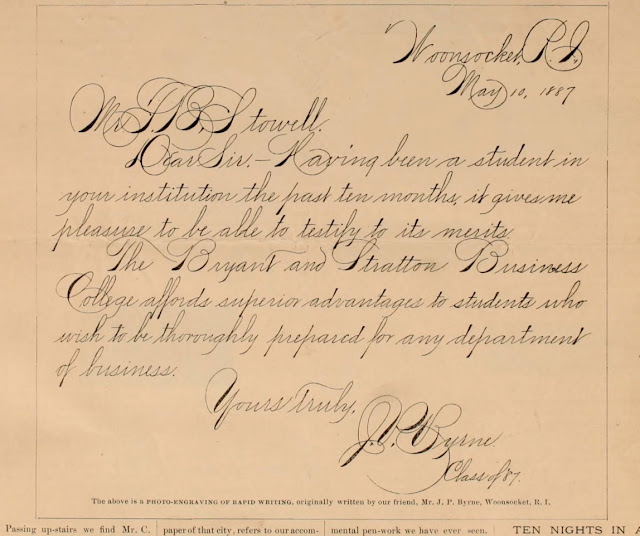 Woonsocket, R. I.
May 10, 1887
Mr. T. B. Stowell.
Dear Sir.— Having been a student in
your institution the past ten months, it gives me
pleasure to be able to testify to its merits
The Bryant and Stratton Business
College affords superior advantages to students who
wish to be thoroughly prepared for any department
of business.
Yours Truly,
J. P. Byrne
Class of 87.
The above is a PHOTO-ENGRAVING OF RAPID WRITING, originally written by our friend, Mr. J. P. Byrne, Woonsocket, R. I.
Passing up-stairs we find Mr. C.
paper of that city, refers to our accom-
mental pen-work we have ever seen.
TEN NIGHTS IN A